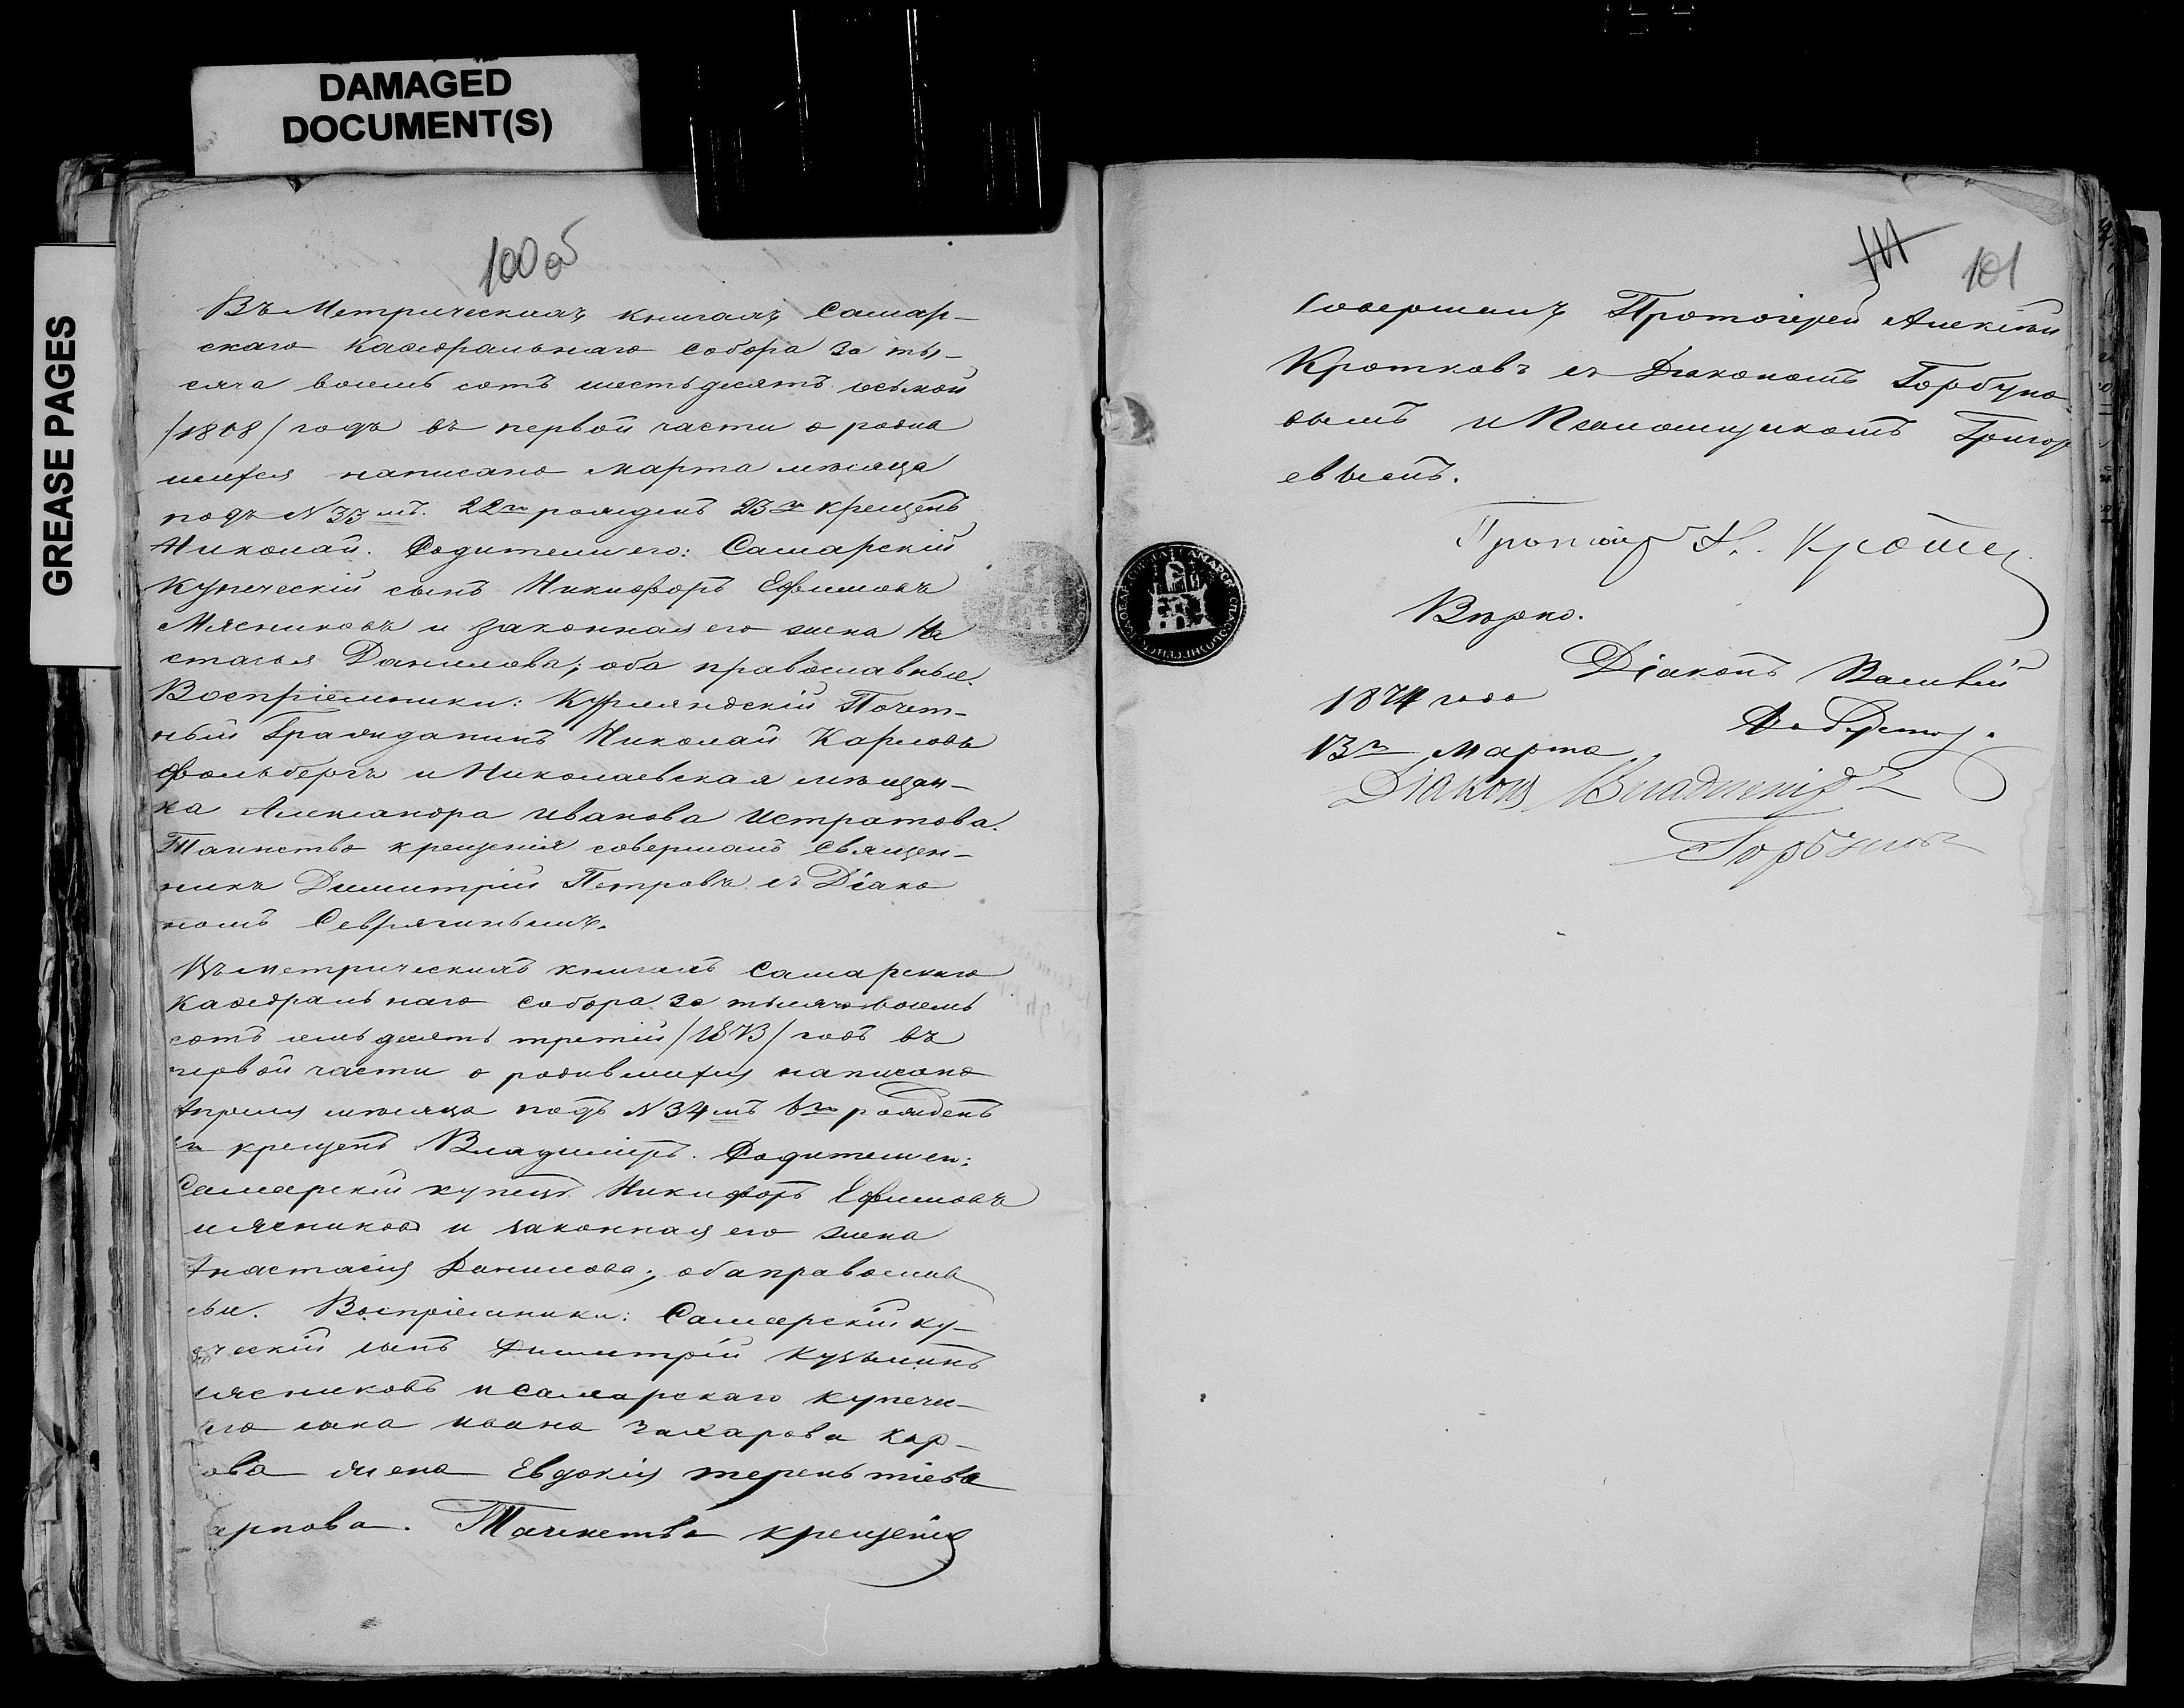 DAMAGED
DOCUMENT(S)
GREASE PAGES
100 об
Въ Метрическихъ книгахъ Самар-
скаго Каѳедральнаго собора за ты-
сяча восемь сотъ шестьдесятъ осьмой
/1868/ годъ въ первой части о родив
шихся написано Марта мѣсяца
подъ N 33 мъ. 22го рожденъ 23го крещенъ
Николай. Родители его: Самарскій
Купеческій сынъ Никифоръ Ефимовъ
Мясниковъ и законная его жена На
стасья Данилова; оба православные.
Воспріемники: Курляндскій Почет-
ный Гражданинъ Николай Карловъ
Фольбергъ и Николаевская мѣщан-
ка Александра Иванова Истратова.
Таинство крещенія совершалъ Священ-
никъ Димитрій Петровъ съ Діако
номъ Севрягинымъ.
Въ метрическихъ книгахъ Самарскаго
Каѳедральнаго собора за тысяча восемь
сотъ семьдесятъ третій /1873/ годъ въ
первой части о родившихся написано
Апрѣля мѣсяца подъ N 34 мъ рожденъ
крещенъ Владиміръ. Родители его:
Самарскій купецъ Никифоръ Ефимовъ
Мясниковъ и законная его жена
Анастасія Данилова; оба православ
ые. Воспріемники: Самарскій ку-
ческій сынъ Димитрій Кузьминъ
Мясниковъ и Самарскаго купече-
аго сына Ивана Захарова Кар-
ова жена Евдокія Терентіева
арпова. Таинство крещенія
111 101
совершалъ Протоіерей Алексѣй
Кротковъ съ Діакономъ Горбуно
вымъ и Псаломщикомъ Григор
евымъ.
Протоіер А. Кротков
Вѣрно.
Діаконъ
1874 года
13го Марта
Діаконъ Владиміръ
Горбуновъ